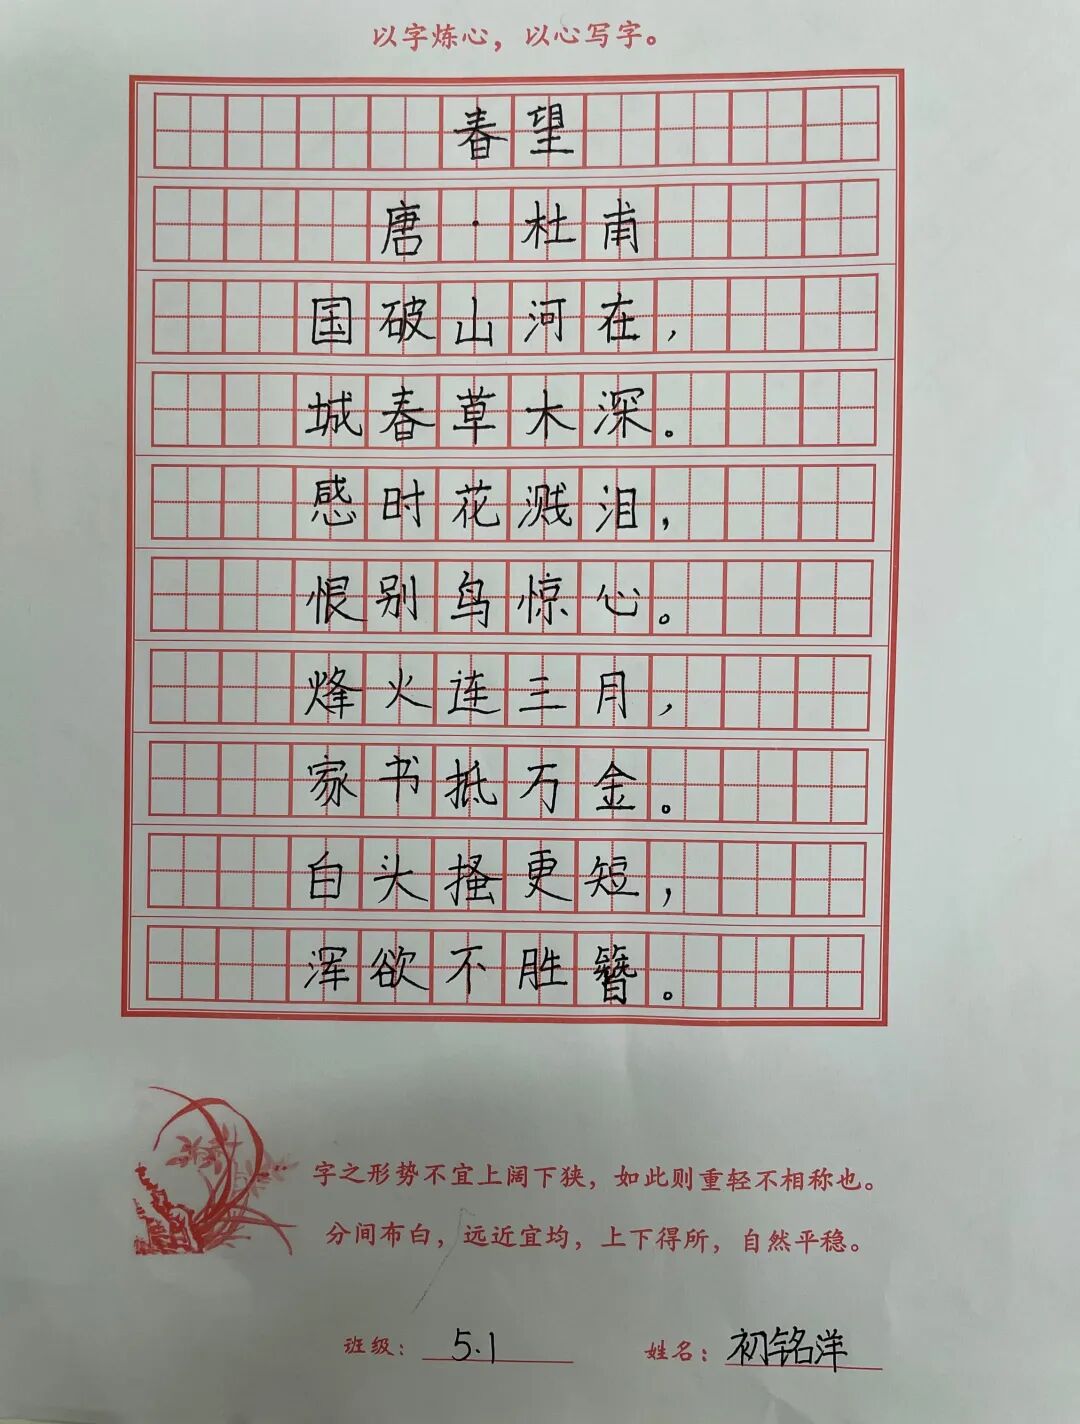 以字炼心，以心写字。
春望
唐·杜甫
国破山河在，
城春草木深。
感时花溅泪，
恨别鸟惊心。
烽火连三月，
家书抵万金。
白头搔更短，
浑欲不胜簪。
字之形势不宜上阔下狭，如此则重轻不相称也。
分间布白，远近宜均，上下得所，自然平稳。
班级：5.1 姓名：初铭洋